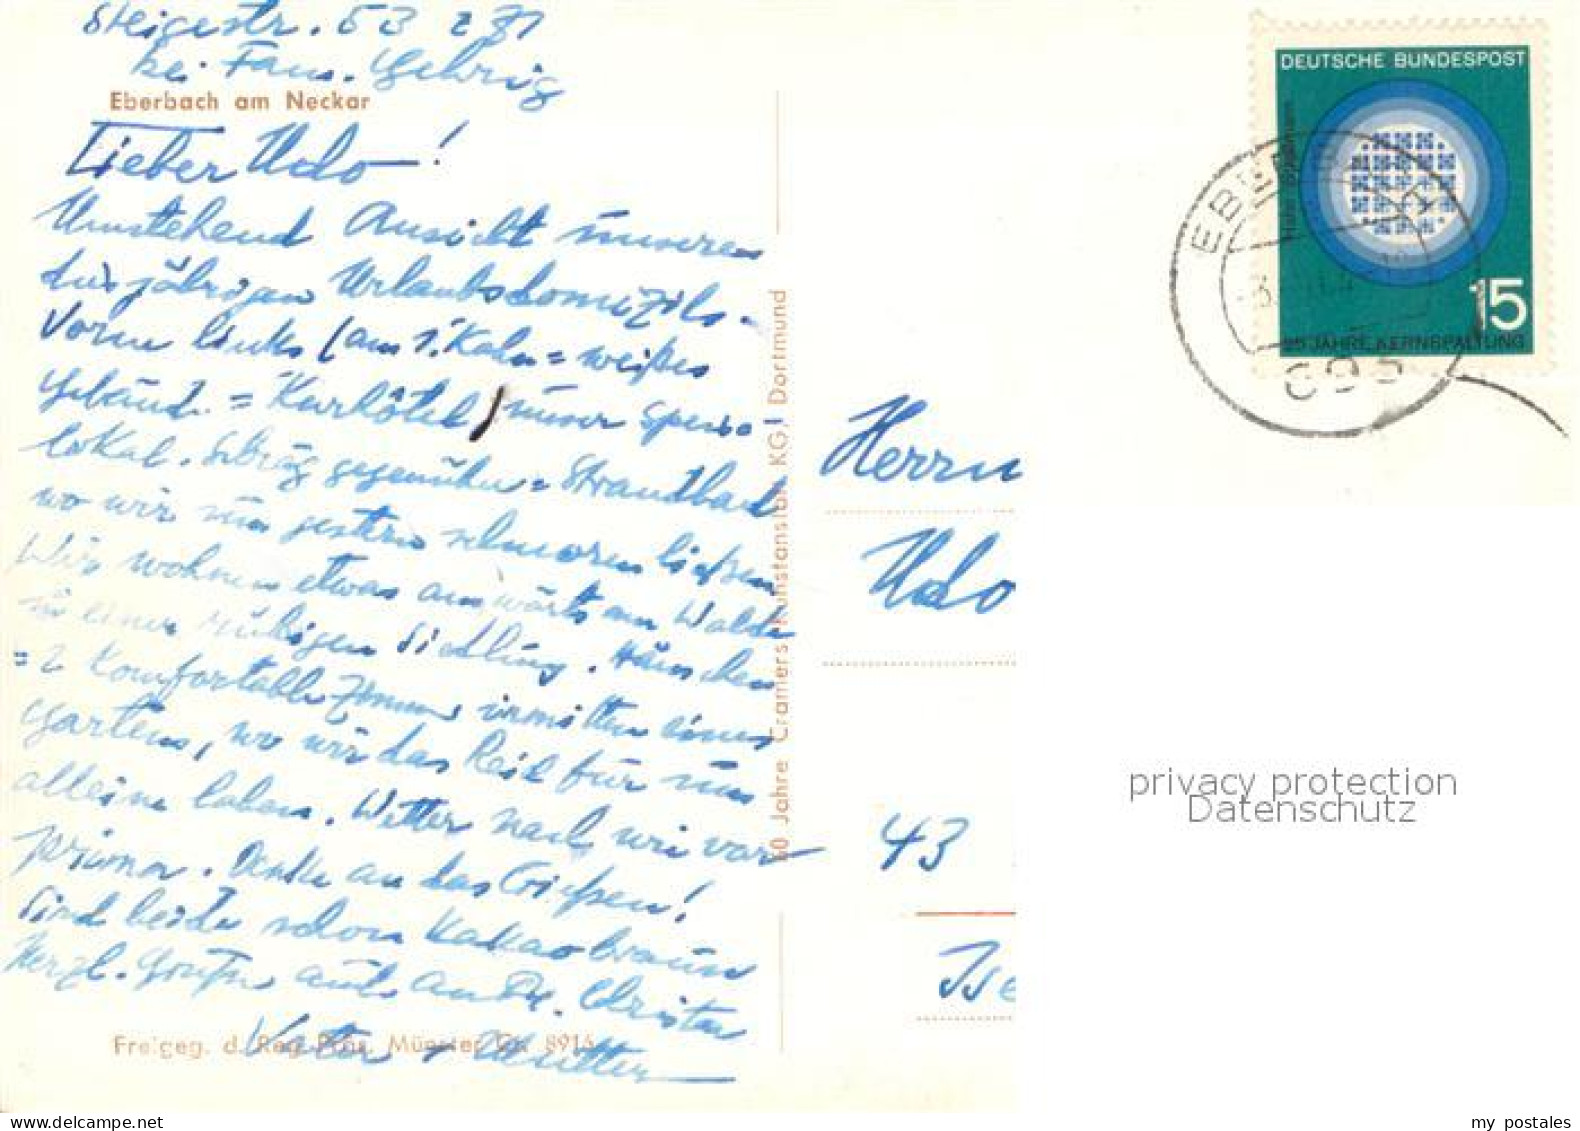 Steigestr. 53
bei Fam. Gehrig
Eberbach am Neckar
Lieber Udo!
Umstehend Ansicht unseres
diesjährigen Urlaubsdomizils.
Vorne links (am 1. Kahn = weißes
Gebäude = Kurhôtel) unser Speise-
lokal. Schräg gegenüber = Strandbad
wo wir uns gestern schmoren ließen
Wir wohnen etwas auswärts am Walde
in einer ruhigen Siedlung. Häuschen
2 komfortable Zimmer inmitten eines
Gartens, wo wir das Reich für uns
alleine haben. Wetter nach wie vor
prima. Denke an das Gießen!
Sind beide schon Kakaobraun
Herzl. Grüße auch an Christa
Vater + Mutter
Freigeg. d. Reg. Präs. Münster Nr. 8915
60 Jahre Cramers Kunstanstalt KG, Dortmund
DEUTSCHE BUNDESPOST
15
25 JAHRE KERNSPALTUNG
Herrn
Udo
43
Ise
privacy protection
Datenschutz
my postales